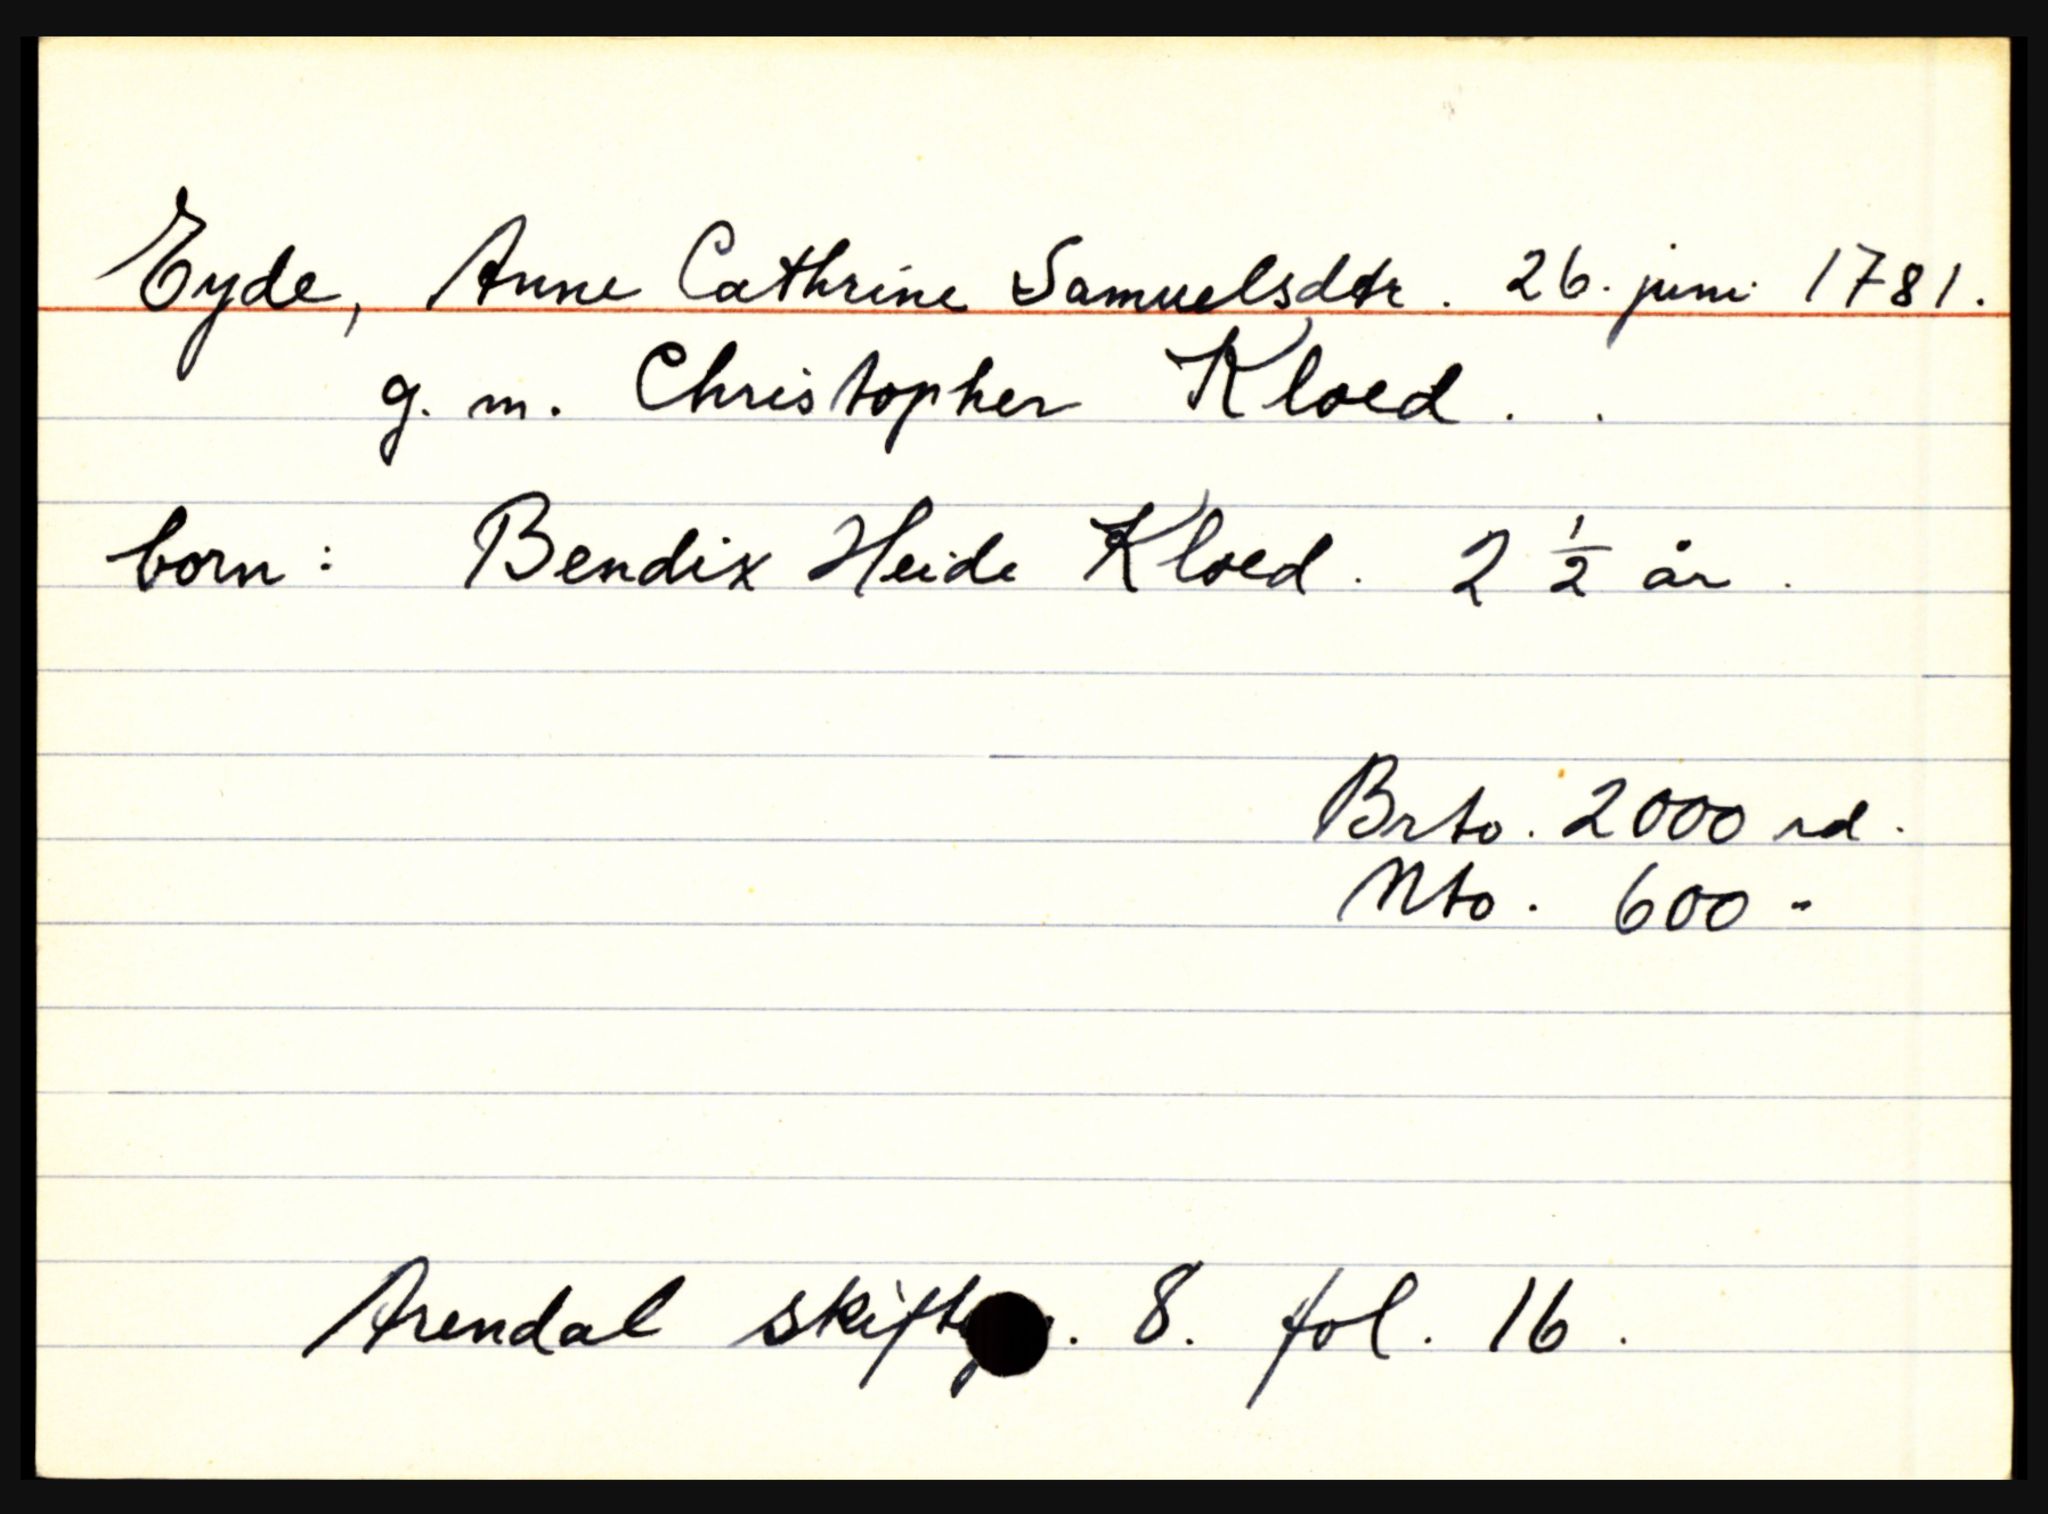 Eyde, Anne Cathrine Samuelsdtr. 26. juni 1781.
g. m. Christopher Kloed.
born: Bendix Heide Kloed. 2 ½ år.
Brto. 2000 rd.
Nto. 600 -
Arendal 8. fol. 16.